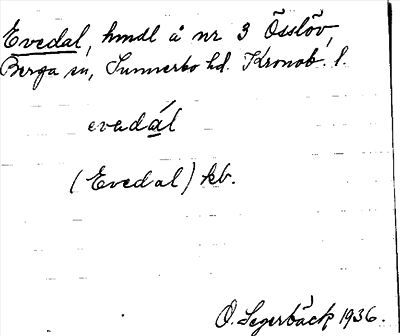 Evedal, hmdl å nr 3 Össlöv,
Berga sn, Sunnerbo hd. Kronob. l.
evadál
(Evedal) kb.
O. Segerbäck 1936.